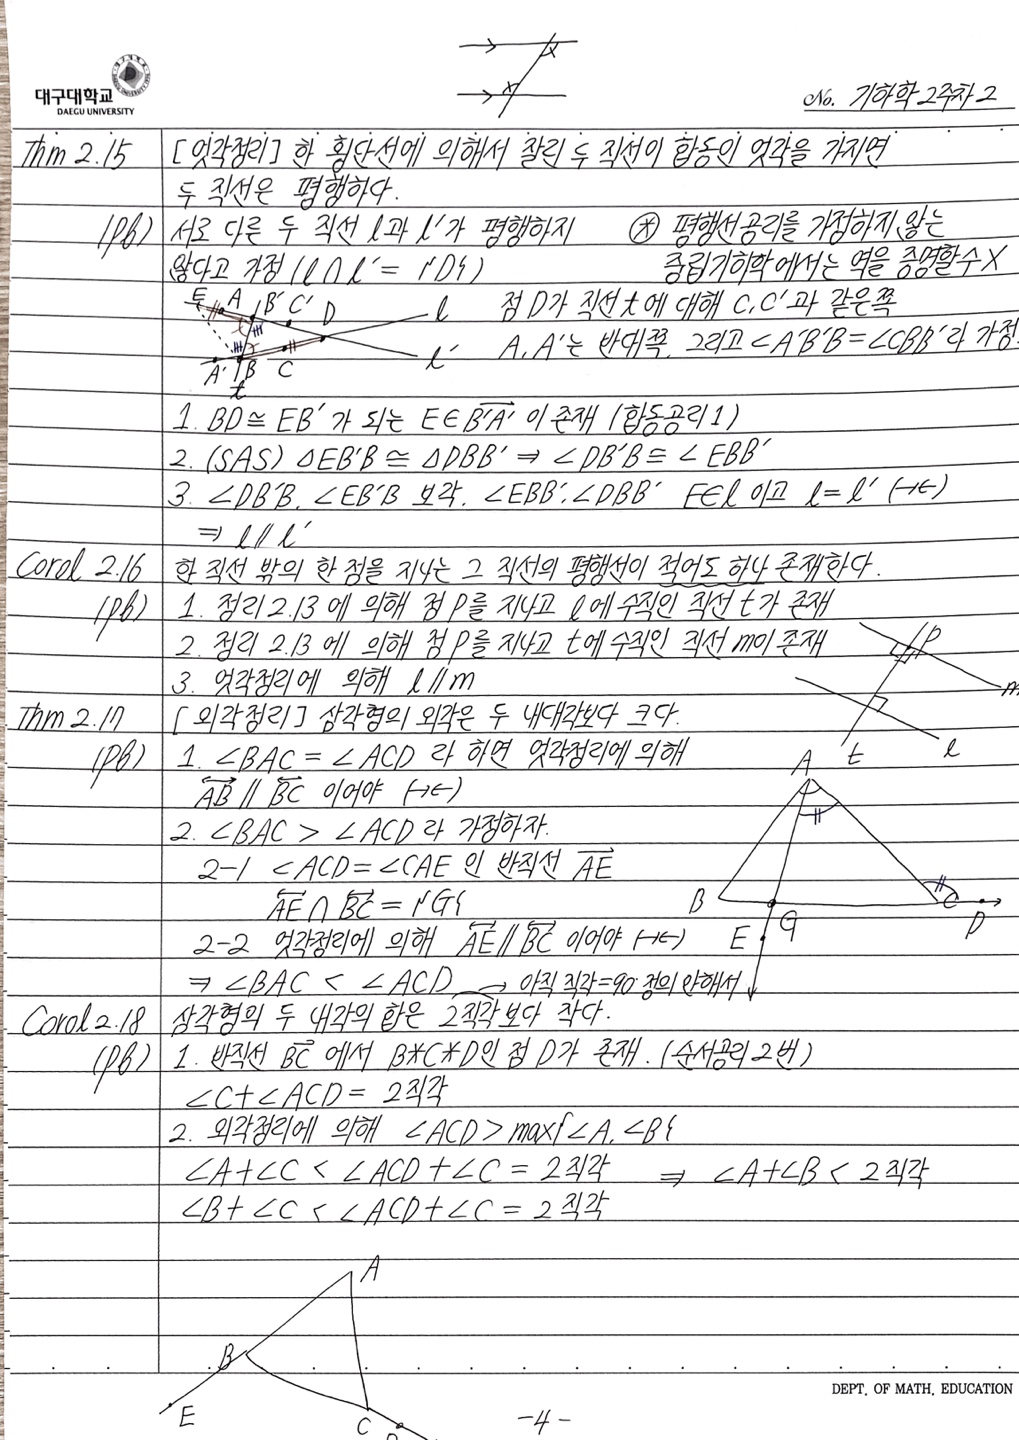 대구대학교
DAEGU UNIVERSITY
No. 기하학2주차2
Thm 2.15 [엇각정리] 한 횡단선에 의해서 잘린 두 직선이 합동인 엇각을 가지면
두 직선은 평행하다.
(pf) 서로 다른 두 직선 l과 l′가 평행하지 ⊛ 평행선공리를 가정하지 않는
않다고 가정 (l∩l′= {D}) 중립기하학에서는 역을 증명할수X
E A B′ C′ D l 점 D가 직선 t에 대해 C, C′과 같은쪽
A′ B C l′ A, A′는 반대쪽, 그리고 ∠A′B′B=∠CBB′라 가정.
t
1. BD≅EB′가 되는 E∈B′A′→ 이 존재 (합동공리1)
2. (SAS) △EB′B ≅ △DBB′ ⇒ ∠DB′B ≅ ∠EBB′
3. ∠DB′B, ∠EB′B 보각, ∠EBB′, ∠DBB′ E∈l 이고 l=l′ (→←)
⇒ l // l′
Corol 2.16 한 직선 밖의 한 점을 지나는 그 직선의 평행선이 적어도 하나 존재한다.
(pf) 1. 정리 2.13에 의해 점 P를 지나고 l에 수직인 직선 t가 존재
2. 정리 2.13에 의해 점 P를 지나고 t에 수직인 직선 m이 존재
3. 엇각정리에 의해 l // m
P m t l
Thm 2.17 [외각정리] 삼각형의 외각은 두 내대각보다 크다.
(pf) 1. ∠BAC = ∠ACD 라 하면 엇각정리에 의해
AB↔ // BC↔ 이어야 (→←)
2. ∠BAC > ∠ACD라 가정하자.
2-1 ∠ACD=∠CAE 인 반직선 AE→
AE↔ ∩ BC↔ = {G}
2-2 엇각정리에 의해 AE↔ // BC↔ 이어야 (→←)
⇒ ∠BAC < ∠ACD → 아직 직각=90° 정의 안해서
A B C D E G
Corol 2.18 삼각형의 두 내각의 합은 2직각보다 작다.
(pf) 1. 반직선 BC→ 에서 B*C*D인 점 D가 존재. (순서공리 2번)
∠C+∠ACD = 2직각
2. 외각정리에 의해 ∠ACD > max{∠A, ∠B}
∠A+∠C < ∠ACD+∠C = 2직각 ⇒ ∠A+∠B < 2직각
∠B+∠C < ∠ACD+∠C = 2직각
A
B
E
C D
DEPT. OF MATH. EDUCATION
-4-